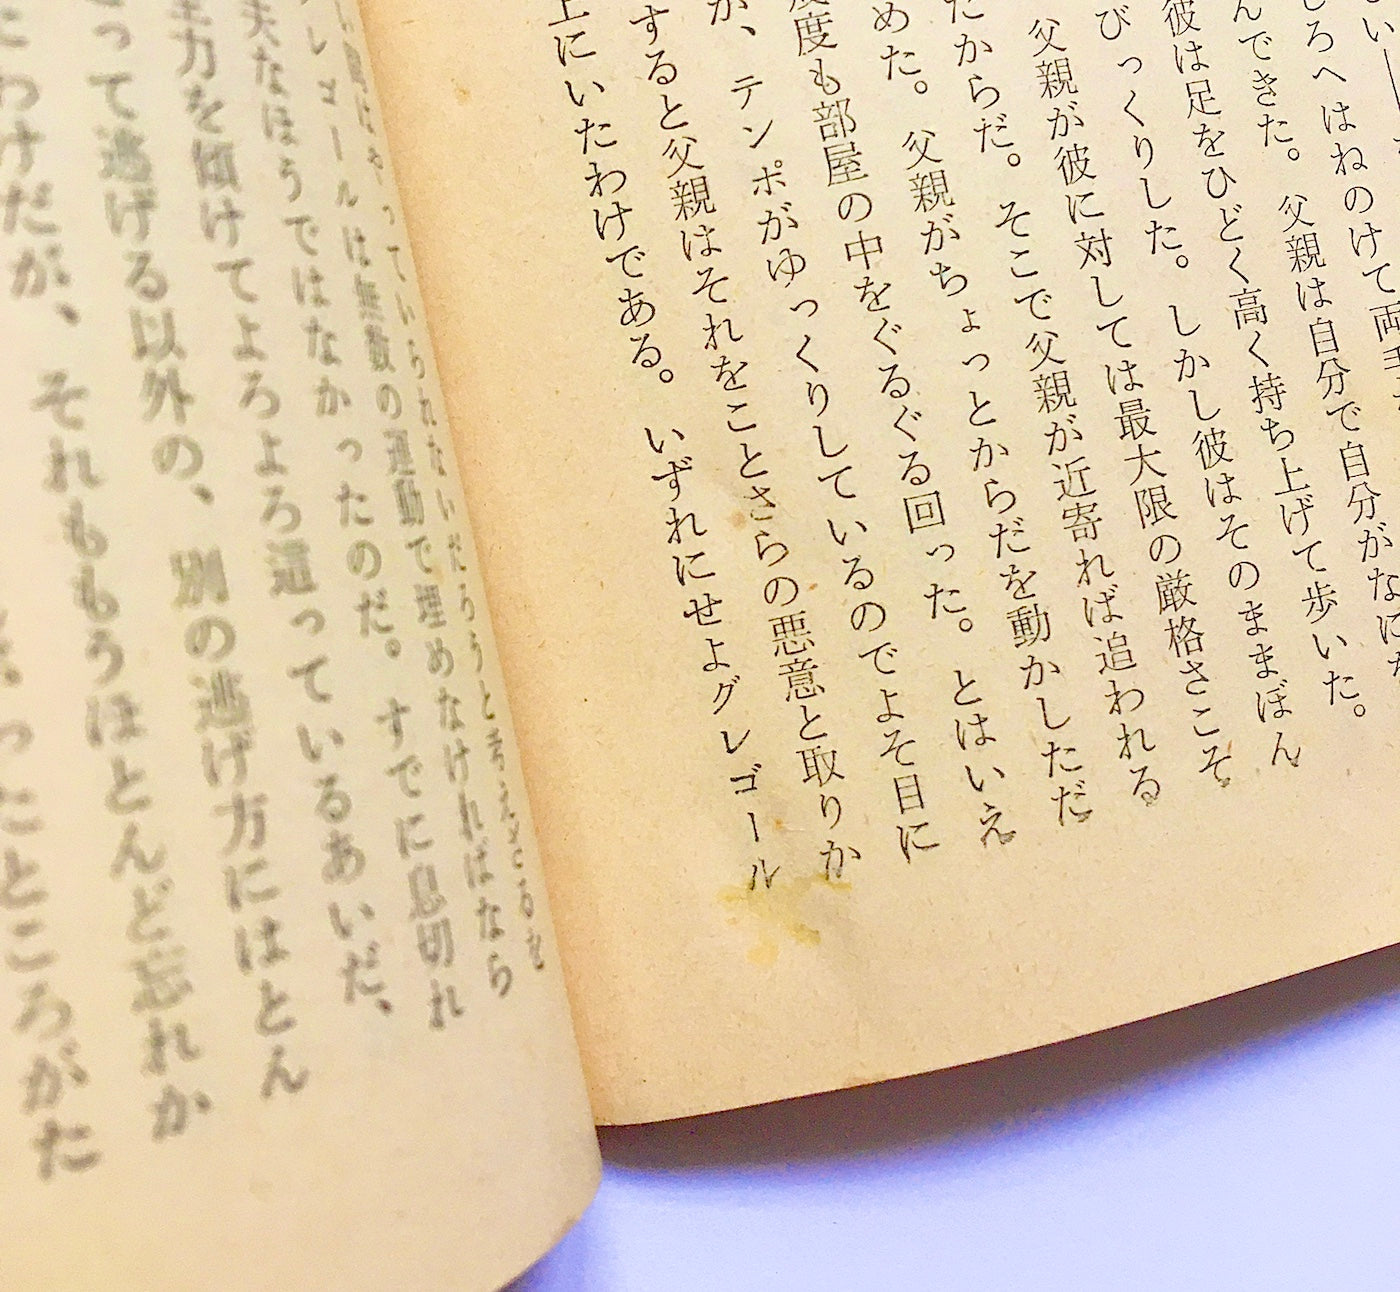 しろへはねのけて両手
んできた。父親は自分で自分がなに
彼は足をひどく高く持ち上げて歩いた。
びっくりした。しかし彼はそのままぼん
父親が彼に対しては最大限の厳格さこそ
たからだ。そこで父親が近寄れば追われる
めた。父親がちょっとからだを動かしただ
度も部屋の中をぐるぐる回った。とはいえ
が、テンポがゆっくりしているのでよそ目に
すると父親はそれをことさらの悪意と取りか
上にいたわけである。いずれにせよグレゴール
ていられないだろうと考えざるを
グレゴールは無数の運動で埋めなければなら
夫なほうではなかったのだ。すでに息切れ
全力を傾けてよろよろ這っているあいだ、
って逃げる以外の、別の逃げ方にはとん
わけだが、それももうほとんど忘れか
ったところがた